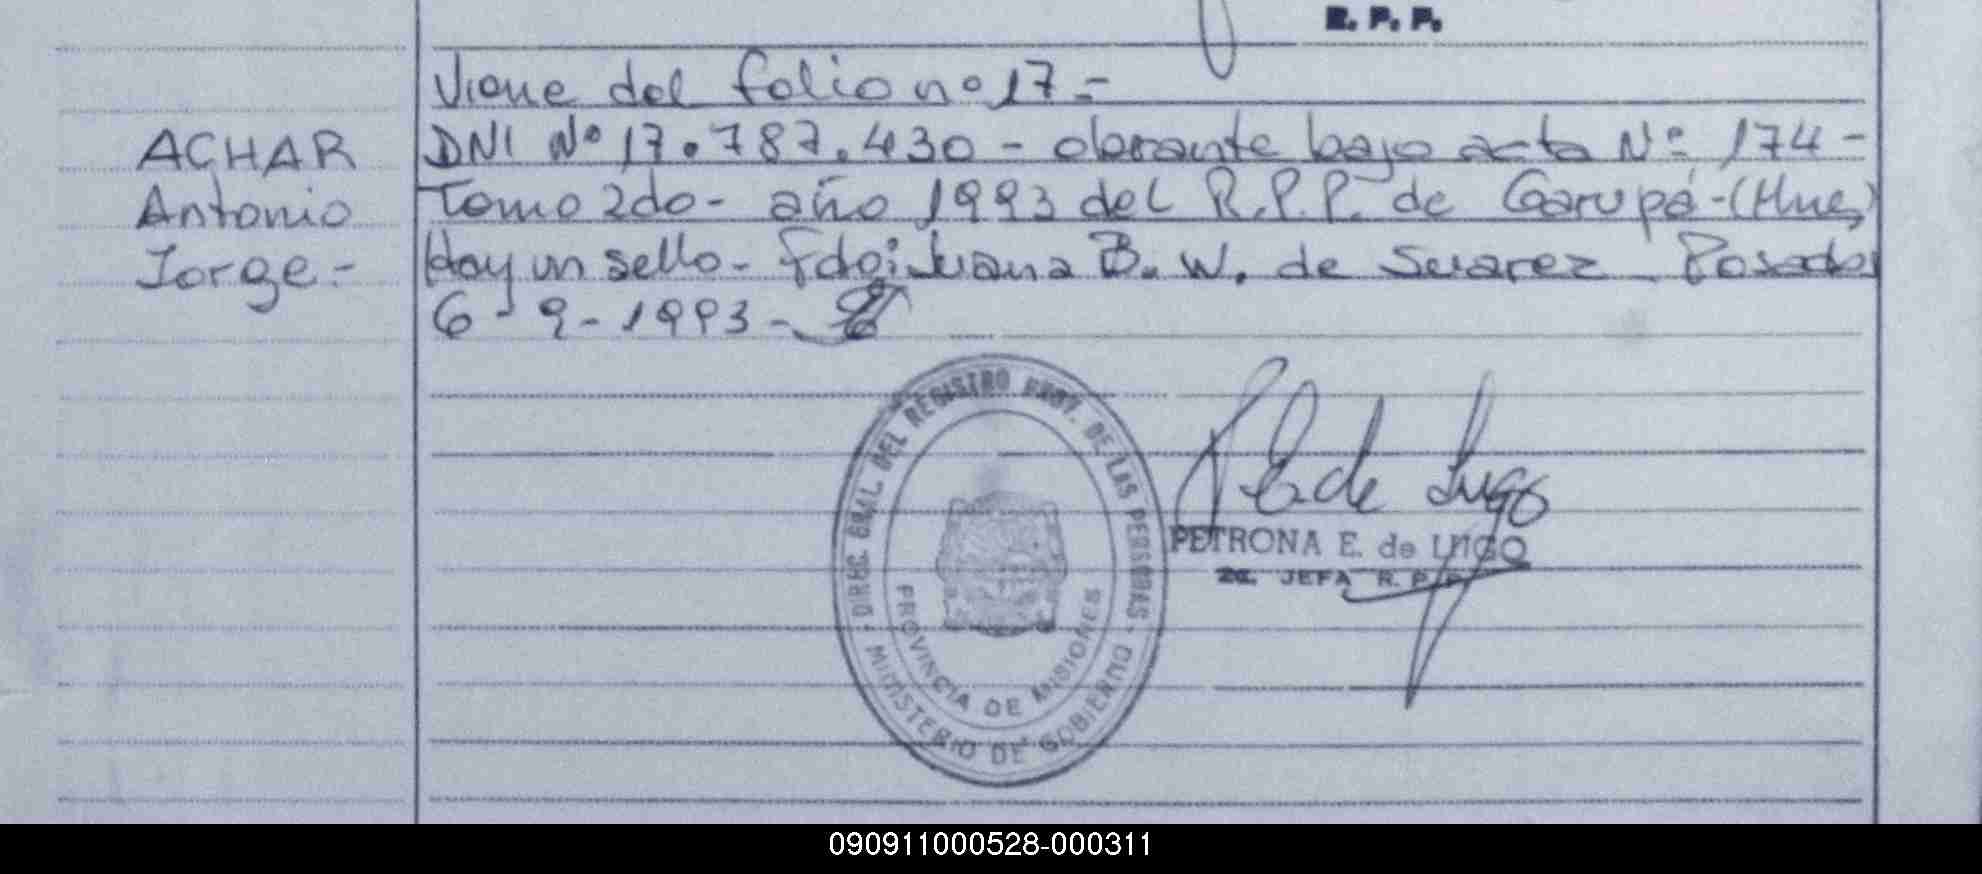 R. P. P.
Viene del folio nº 17 =
ACHAR
Antonio
Jorge =
DNI Nº 17.787.430 - obrante bajo acta Nº 174 -
Tomo 2do - año 1993 del R.P.P. de Garupá - (Mnes)
Hay un sello - Fdo: Juana B. W. de Suarez Posadas
6 - 9 - 1993 -
DIREC. GRAL. DEL REGISTRO PROV. DE LAS PERSONAS
PROVINCIA DE MISIONES
MINISTERIO DE GOBIERNO
P E de Lugo
PETRONA E. de LUGO
JEFA R. P. P.
090911000528-000311